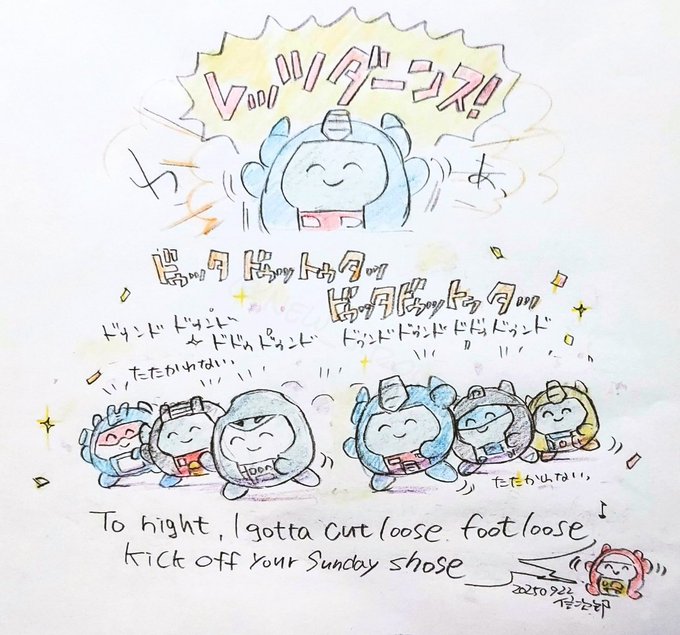 レッツダーンス!
わぁっ
ドゥッタ ドゥットゥタッ
ドゥッタドゥットゥタッ
ドゥンド ドゥンド
ドドゥドゥンド
ドゥンドドゥンド ドドゥドゥンド
たたかわない
たたかわない
To night, I gotta cut loose footloose
kick off your Sunday shose
20250922